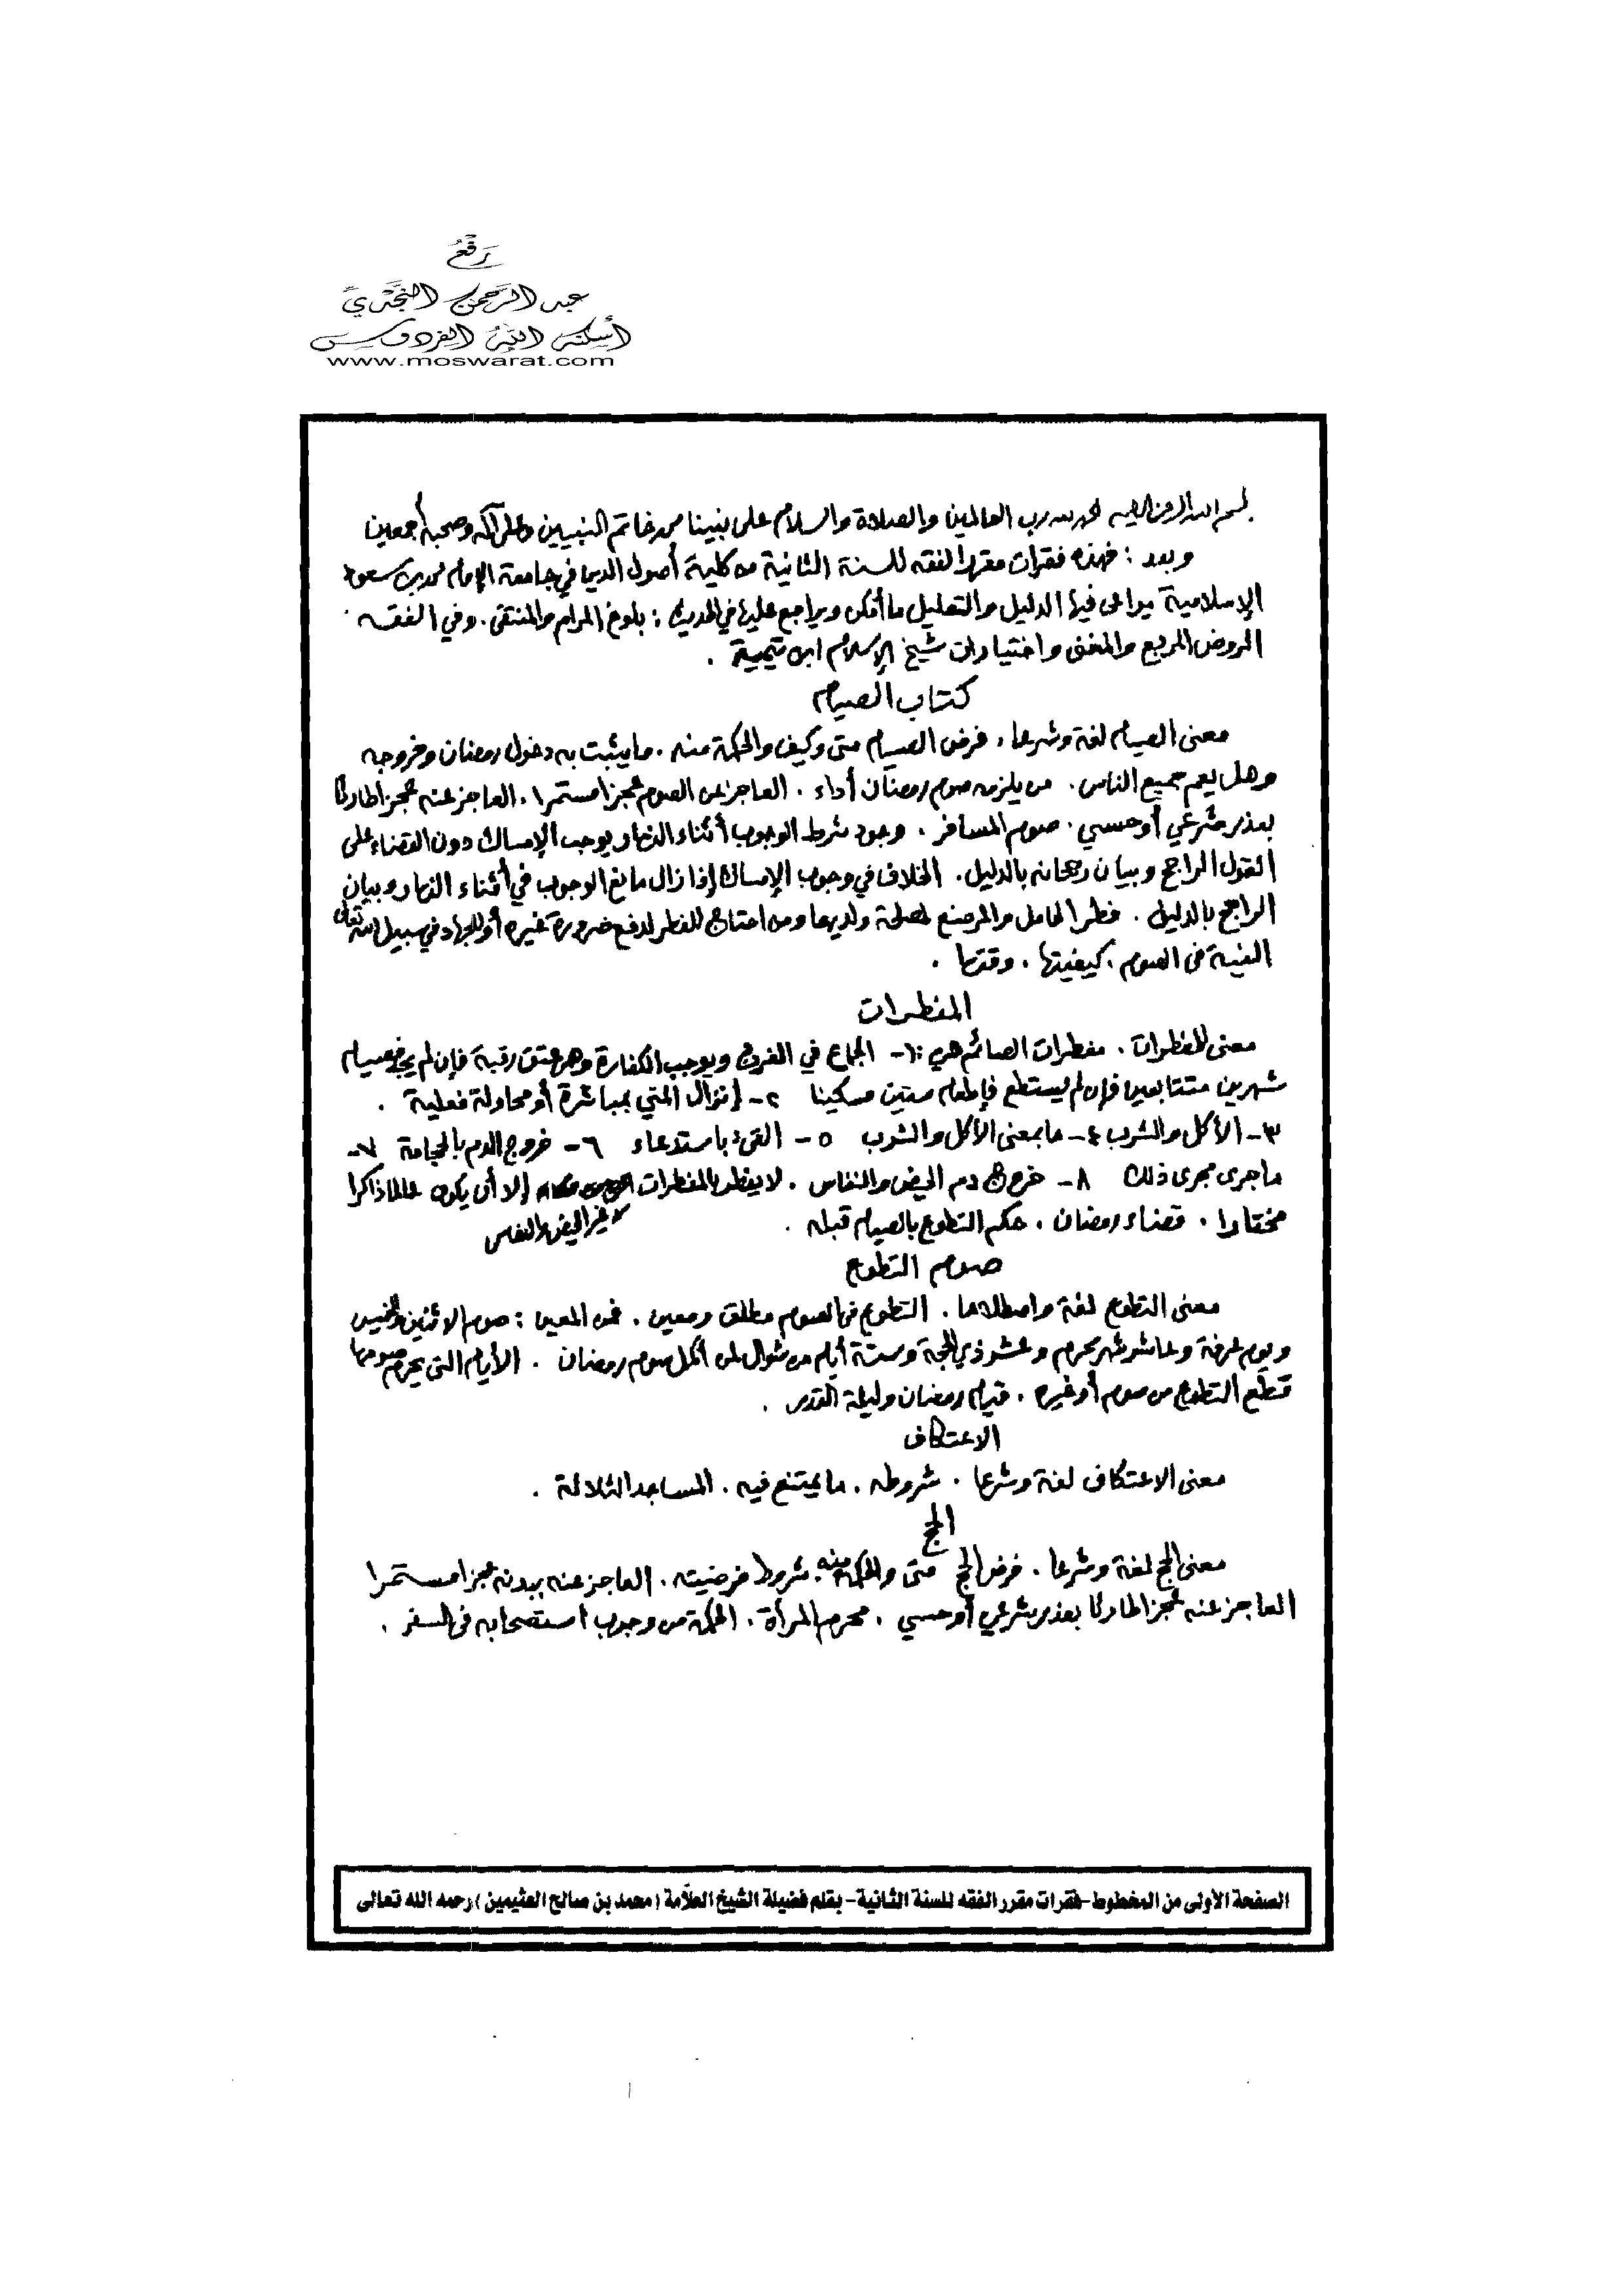 رَفْعُ
عبد الرحمن النجدي
أسكنه الله الفردوس
www.moswarat.com
بسم الله الرحمن الرحيم الحمد لله رب العالمين والصلاة والسلام على نبينا محمد خاتم النبيين وعلى آله وصحبه أجمعين
وبعد : فهذه فقرات مقرر الفقه للسنة الثانية من كلية أصول الدين في جامعة الإمام محمد بن سعود
الإسلامية يراعى فيها الدليل والتعليل ما أمكن ويراجع عليها في الحديث : بلوغ المرام والمنتقى . وفي الفقه
الروض المربع والمغني واختيارات شيخ الإسلام ابن تيمية .
كتاب الصيام
معنى الصيام لغة وشرعا . فرض الصيام متى وكيف والحكمة منه . ما يثبت به دخول رمضان وخروجه
وهل يعم جميع الناس . من يلزمه صوم رمضان أداء . العاجز عن الصوم عجزا مستمرا . العاجز عنه عجزا طارئا
بعذر شرعي أو حسي . صوم المسافر . وجود شرط الوجوب أثناء النهار يوجب الإمساك دون القضاء على
القول الراجح وبيان رجحانه بالدليل . الخلاف في وجوب الإمساك إذا زال مانع الوجوب في أثناء النهار وبيان
الراجح بالدليل . فطر الحامل والمرضع لمصلحة ولديهما ومن احتاج للفطر لدفع ضرورة غيره أو للجهاد في سبيل الله تعالى
النية في الصوم . كيفيتها . وقتها .
المفطرات
معنى المفطرات . مفطرات الصائم هي : ١- الجماع في الفرج ويوجب الكفارة وهو عتق رقبة فإن لم يجد فصيام
شهرين متتابعين فإن لم يستطع فإطعام ستين مسكينا ٢- إنزال المني بمباشرة أو محاولة فعلية .
٣- الأكل والشرب ٤- ما بمعنى الأكل والشرب ٥- القيء باستدعاء ٦- خروج الدم بالحجامة ٧-
ما جرى مجرى ذلك ٨- خروج دم الحيض والنفاس . لا يفطر بالمفطرات إلا أن يكون عالما ذاكرا
غير الحيض والنفاس
مختارا . قضاء رمضان . حكم التطوع بالصيام قبله .
صوم التطوع
معنى التطوع لغة واصطلاحا . التطوع في الصوم مطلق ومعين . فمن المعين : صوم الاثنين والخميس
ويوم عرفة وعاشر شهر محرم وعشر ذي الحجة وستة أيام من شوال لمن أكمل صوم رمضان . الأيام التي يحرم صومها
قطع التطوع من صوم أو غيره . قيام رمضان وليلة القدر .
الاعتكاف
معنى الاعتكاف لغة وشرعا . شروطه . ما يمتنع فيه . المساجد الثلاثة .
الحج
معنى الحج لغة وشرعا . فرض الحج متى والحكمة منه . شروط فرضيته . العاجز عنه ببدنه عجزا مستمرا
العاجز عنه عجزا طارئا بعذر شرعي أو حسي . محرم المرأة . الحكمة من وجوب استصحابه في السفر .
الصفحة الأولى من المخطوط - فقرات مقرر الفقه للسنة الثانية - بقلم فضيلة الشيخ العلّامة (محمد بن صالح العثيمين) رحمه الله تعالى